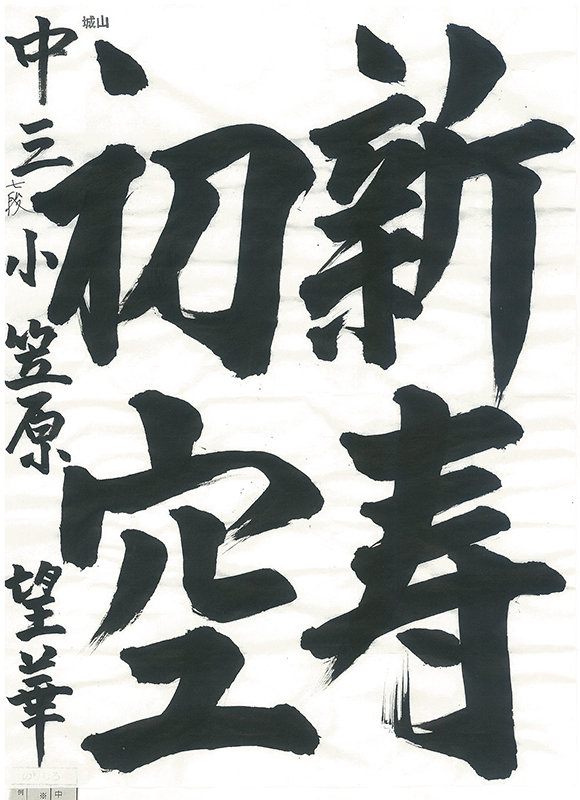 新寿
初空
中三 小笠原 望華
七段
山城
例 ※ 中